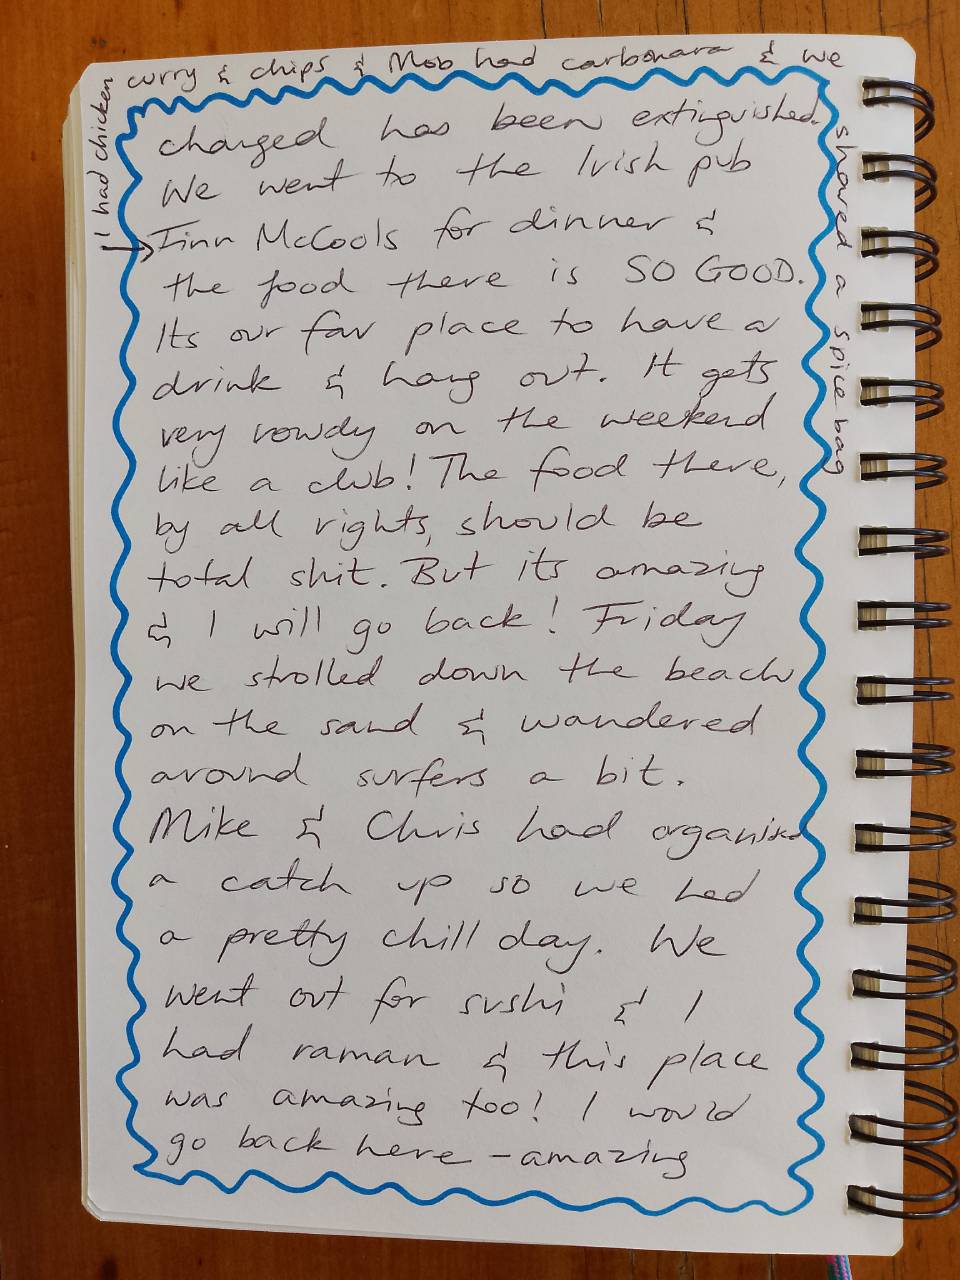 I had chicken
curry & chips & Mob had carbonara & we
shared a spice bag
changed has been extinguished.
We went to the Irish pub
Finn McCools for dinner &
the food there is SO GOOD.
Its our fav place to have a
drink & hang out. It gets
very rowdy on the weekend
like a club! The food there,
by all rights, should be
total shit. But its amazing
& I will go back! Friday
we strolled down the beach
on the sand & wandered
around surfers a bit.
Mike & Chris had organised
a catch up so we had
a pretty chill day. We
went out for sushi & I
had raman & this place
was amazing too! I would
go back here - amazing